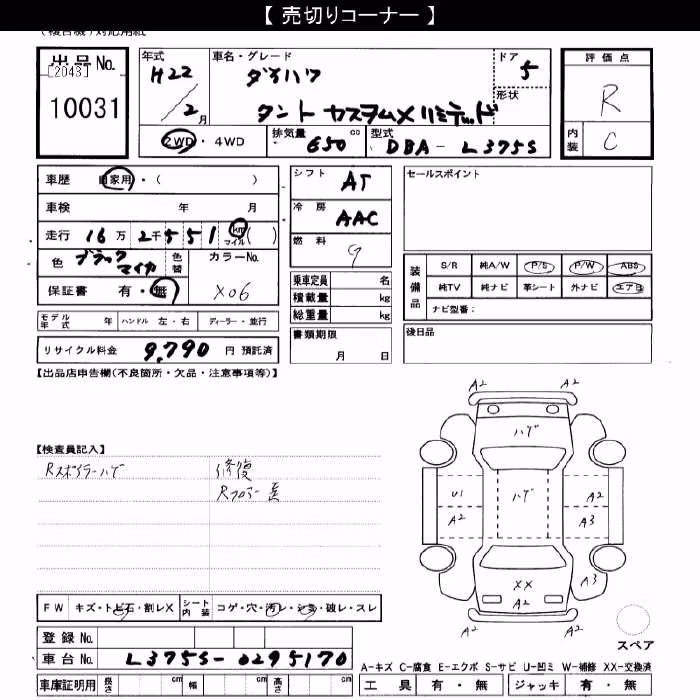 【 売切りコーナー 】
出品No.
[2043]
10031
年式 H22/2月
車名・グレード ダイハツ
タント カスタムX リミテッド
ドア 5
形状
2WD・4WD
排気量 650 cc
型式 DBA-L375S
評価点 R
内装 C
車歴 自家用・( )
車検 年 月
走行 16万 2千551 km マイル ( )
色 ブラックマイカ 色替
カラーNo. X06
保証書 有・無
シフト AT
冷房 AAC
燃料 G
乗車定員 名
積載量 kg
総重量 kg
書類期限
月 日
セールスポイント
装備品
S/R 純A/W P/S P/W ABS
純TV 純ナビ 革シート 外ナビ エアB
ナビ型番:
後日品
モデル年式 年 ハンドル 左・右 ディーラー・並行
リサイクル料金 9,790 円 預託済
【出品店申告欄(不良箇所・欠品・注意事項等)】
【検査員記入】
Rスポイラーハゲ
修復
Rフロアー
A2 A2
ハゲ
ハゲ
U1
A2
A2
A3
A3
XX
A2
A2 A2
スペア
FW キズ・トビ石・割レX
シート内装 コゲ・穴・汚レ・シミ・破レ・スレ
登録No.
車台No. L375S-0295170
車庫証明用 長さ cm 幅 cm 高さ cm
A-キズ C-腐食 E-エクボ S-サビ U-凹ミ W-補修 XX-交換済
工具 有・無 ジャッキ 有・無